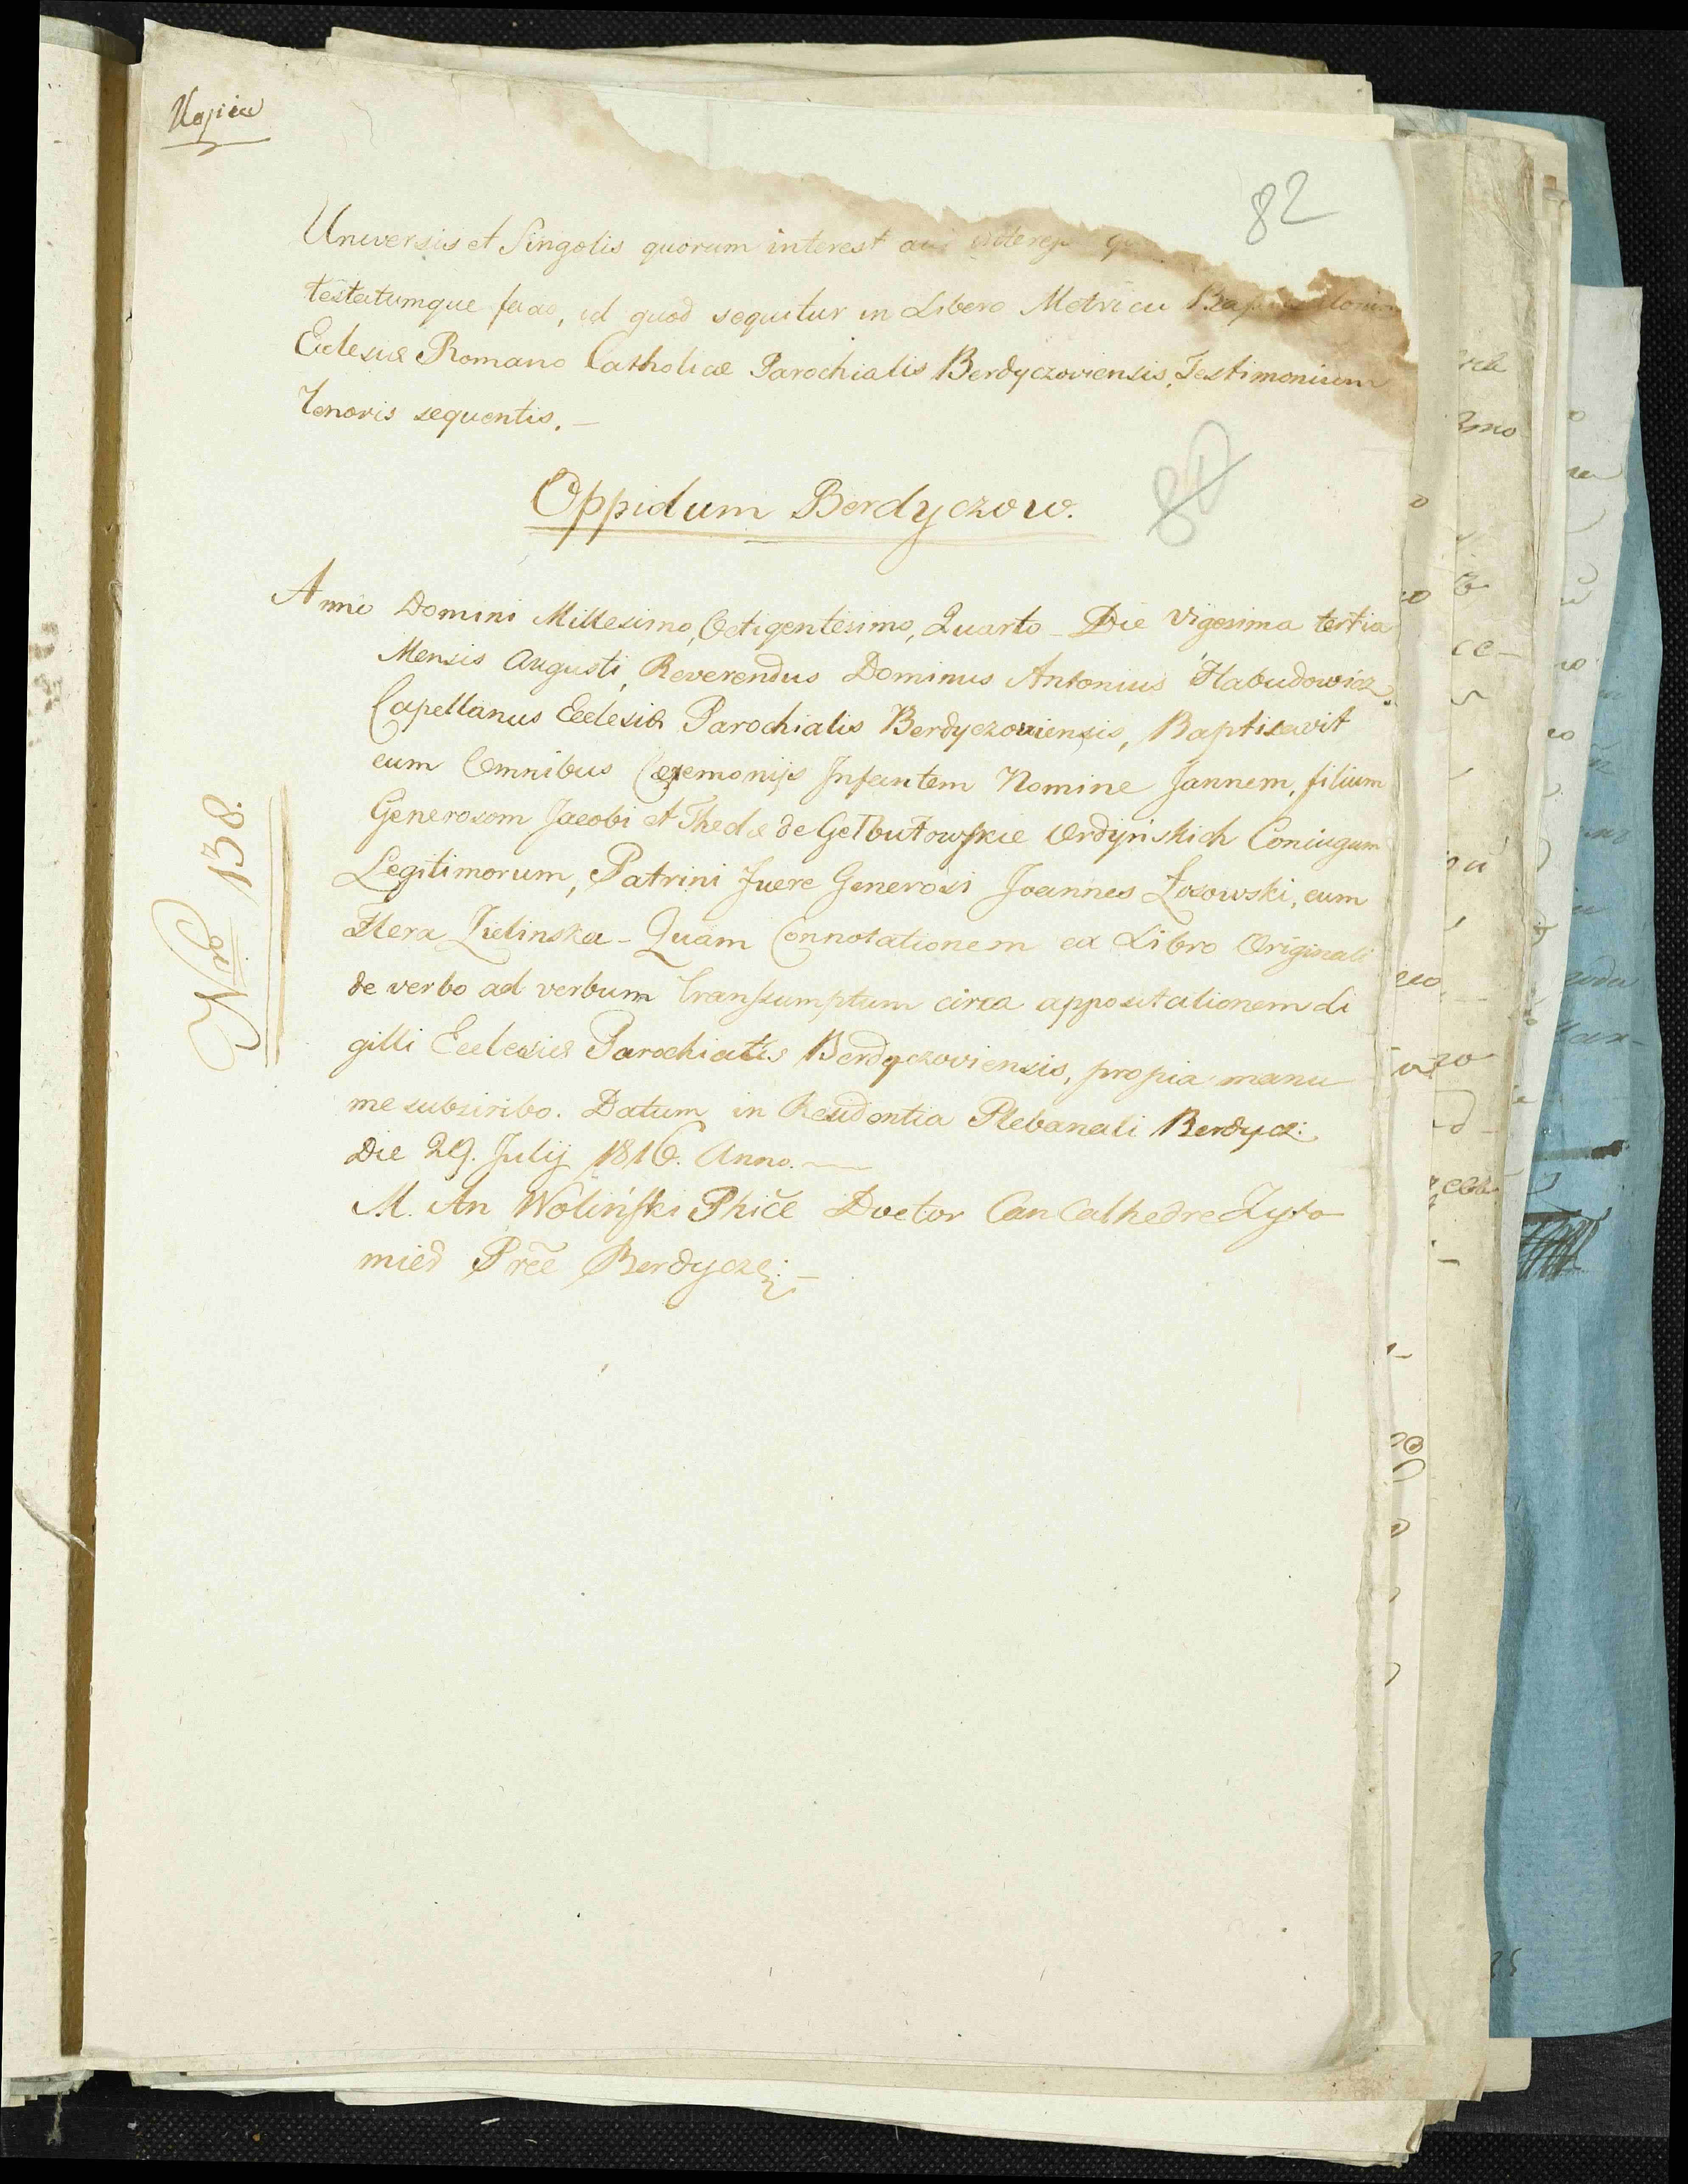 Копія
82
Universis et Singolis quorum interest aut
testatumque facio, id quod sequitur in Libero Metricu
Eclesiæ Romano Catholicæ Parochialis Berdyczoviensis, Testimonium
Tenoris sequentis. —
80
Oppidum Berdyczow.
Anno Domini Millesimo, Octigentesimo, Quarto Die Vigesima tertia
Mensis Augusti, Reverendus Dominus Antonius Habudowicz
Capellanus Eclesiæ Parochialis Berdyczowiensis, Baptisavit
cum Omnibus Ceremonijs Infantem Nomine Jannem, filium
Generosom Jacobi et Theclæ de Gelbutowskie Ordyńskich Coniugum
Legitimorum, Patrini fuere Generosi Joannes Łosowski, cum
Zielinska - Quam Connotationem ex Libro Originali
de verbo ad verbum Transsumptum circa apposítationem di
gilli Eclesiæ Parochialis Berdyczoviensis, propia manu
me subsiribo. Datum in Residentia Plebanali Berdycz:
Die 29. Julij 1816. Anno. —
M. An Woliński Phiče Doctor Can Cathedre Zyto
mied Prěe Berdycze: —
No 138.